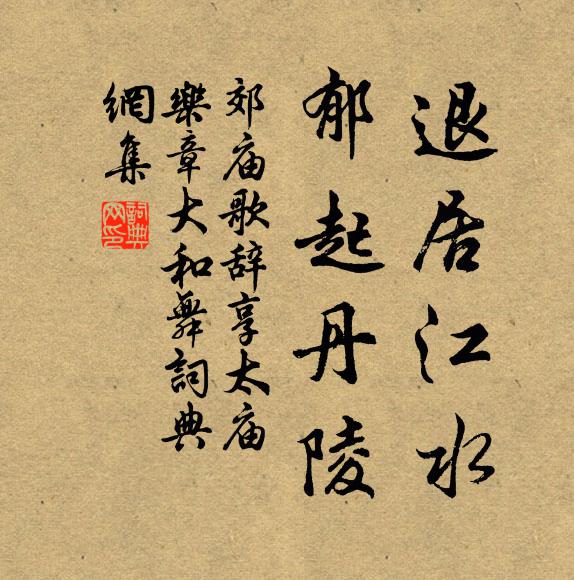 退居江水
郁起丹陵
郊庙歌辞享太庙
樂章大和舞詞典
網集
詞典网印